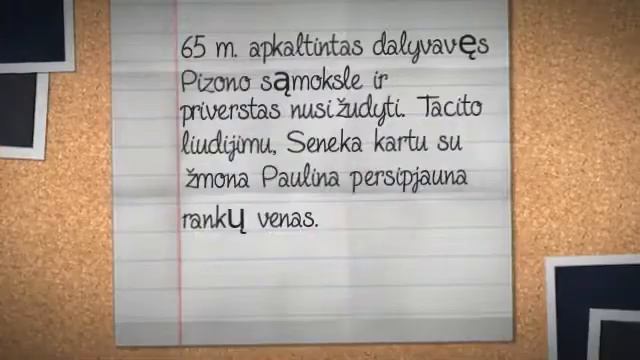 65 m. apkaltintas dalyvavęs
Pizono sąmoksle ir
priverstas nusižudyti. Tacito
liudijimu, Seneka kartu su
žmona Paulina persipjauna
rankų venas.